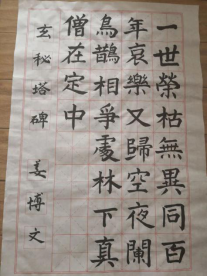 一世榮枯無異同百
年哀樂又歸空夜闌
鳥鵲相爭處林下真
僧在定中
玄秘塔碑 姜博文